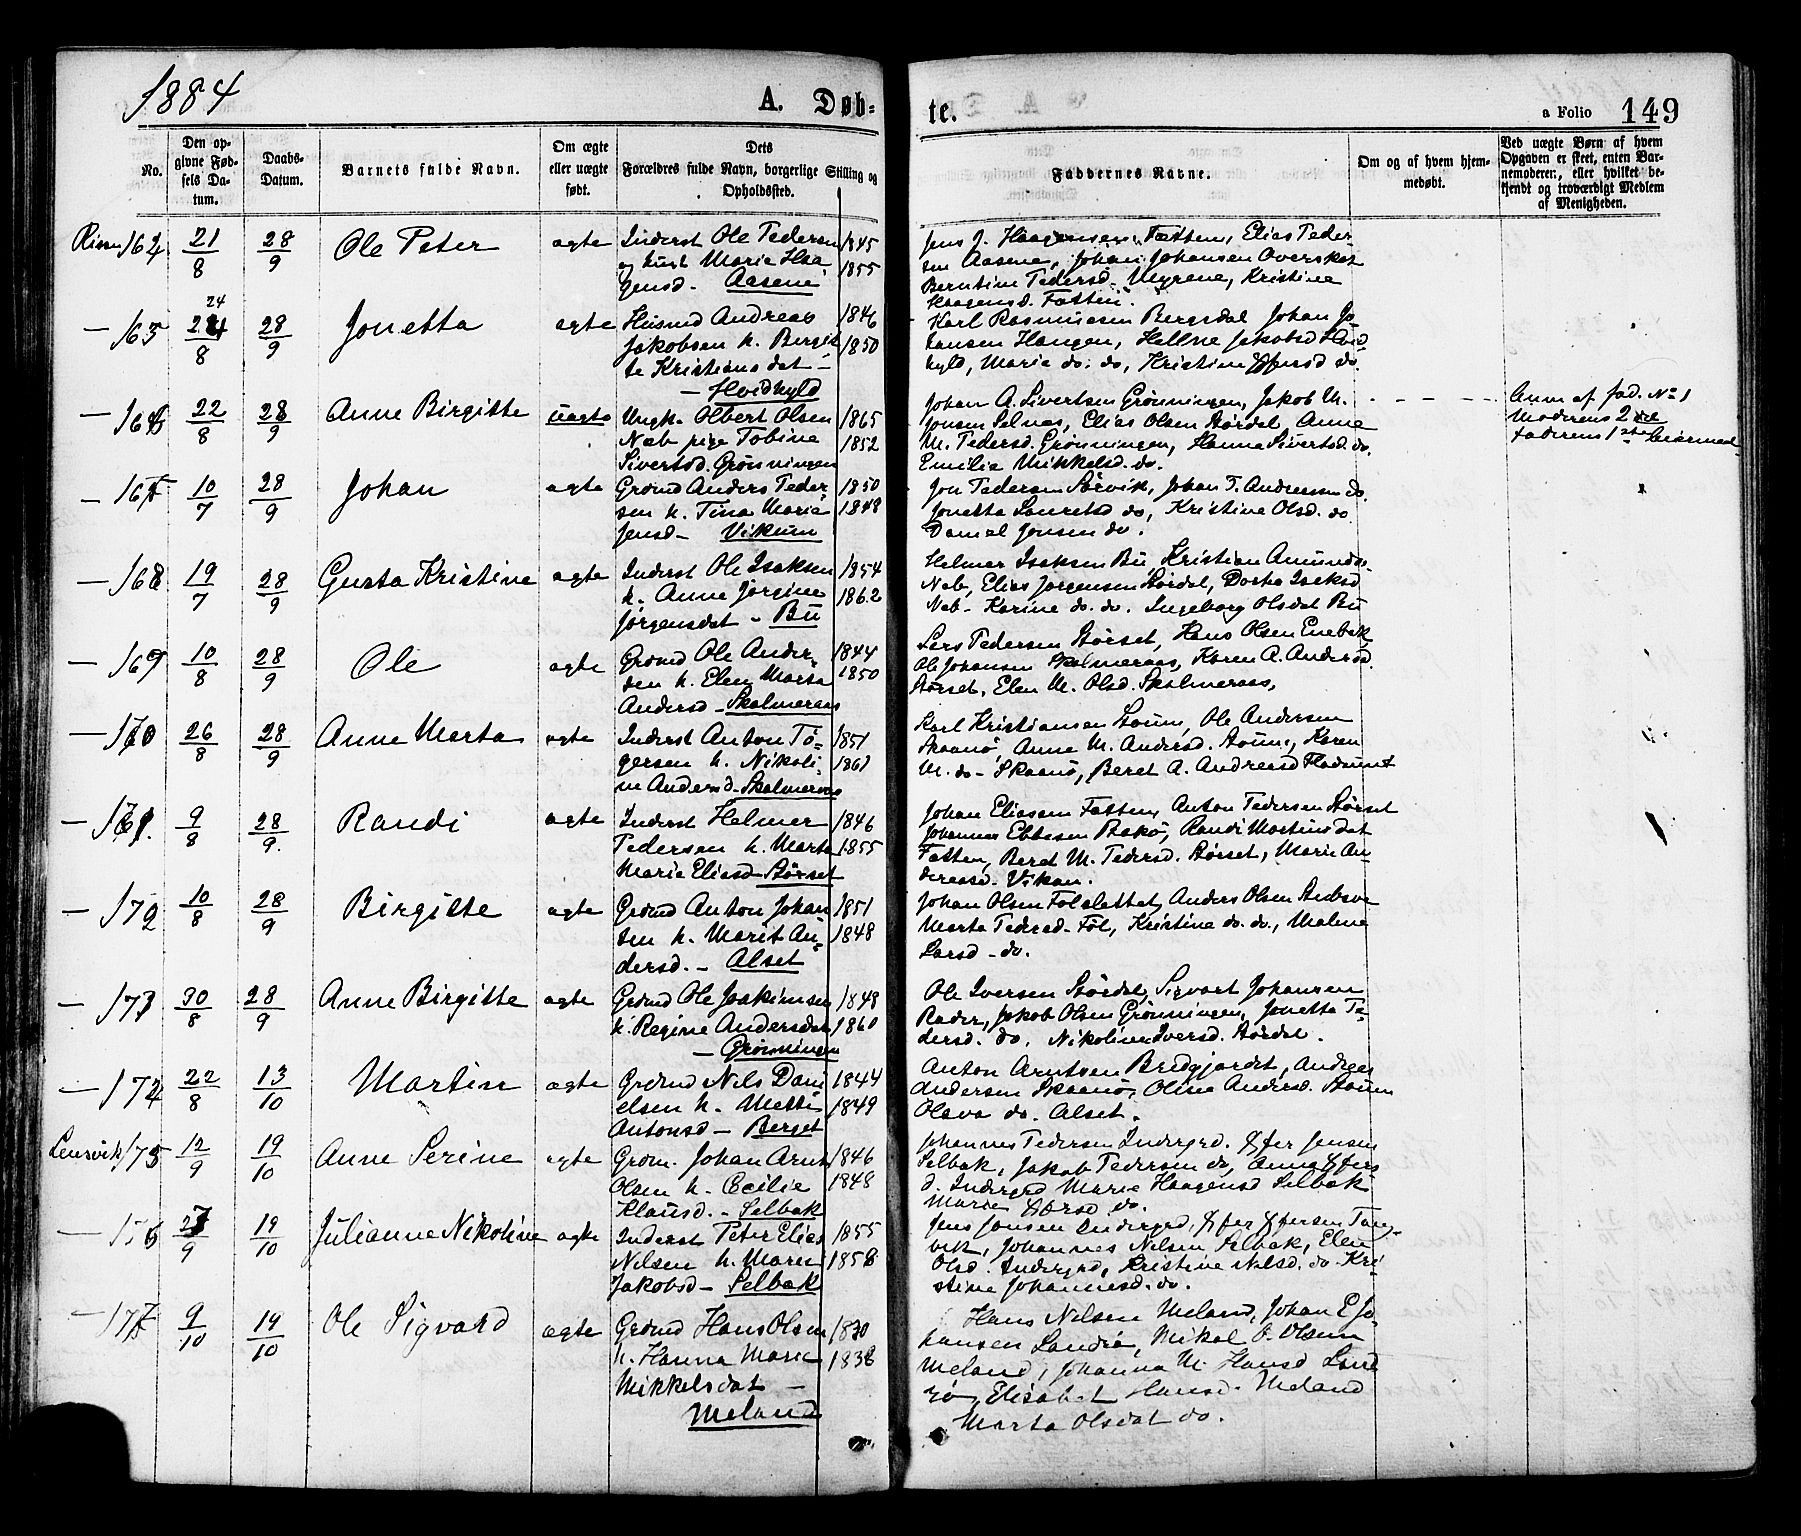 1884
A. Døb-
te.
a Folio 149
No.
Den op-
givne Fød-
sels Da-
tum.
Daabs-
Datum.
Barnets fulde Navn.
Om ægte
eller uægte
født.
Dets
Forældres fulde Navn, borgerlige Stilling og
Opholdssted.
Faddernes Navne.
Om og af hvem hjem-
medøbt.
Ved uægte Børn af hvem
Opgaven er skeet, enten Bar-
nemoderen, eller hvilket be-
kjendt og troværdigt Medlem
af Menigheden.
Rissen 164 21/8 28/9 Ole Peter ægte Inderst Ole Pedersen 1845
og hust Marie Haa- 1855
gensd. Aasene
Jens J. Haagensen Fætten, Elias Peder-
sen Aasene, Johan Johansen Overskot
Berntine Pedersd. Myrene, Kristine
Haagensd. Fætten.
— 165 24/8 28/9 Jonetta ægte Husmd Andreas 1846
Jakobsen h. Birgit- 1850
te Kristiansdat —
— Hvidhyld
Karl Rasmussen Bergsdal Johan Jo-
hansen Haugen, Helene Jakobsd Hvid-
hyld, Maria do. do, Kristine do.
— 166 22/8 28/9 Anne Birgitte uægte Ungk. Olbert Olsen 1865
Næb pige Tobine 1852
Sivertsd. Grønningen
Johan A. Sivertsen Grønningen, Jakob M.
Jonsen Selnes, Elias Olsen Størdal, Anne
M. Pedersd. Grønningen, Hanna Sivertsd. do.
Emilie Mikkelsd. do.
Anm af fad. No 1
Moderens 2det
faderens 1ste Leiermaal
— 167 10/7 28/9 Johan ægte Grdmd Anders Peder- 1850
sen h. Tina Marie 1848
Jensd — Vikum
Jon Pedersen Sørvik, Johan P. Andersen do.
Jonetta Lauretsd do, Kristine Olsd. do
Daniel Jonsen do.
— 168 19/7 28/9 Gusta Kristine ægte Inderst Ole Isaksen 1854
h. Anne Jørgine 1862
Jørgensdat — Bu
Helmer Isaksen Bu, Kristian Amunds.
Næb, Elias Jørgensen Størdal, Dorta Isaksd
Næb — Karine do. do. Ingeborg Olsdat Bu
— 169 10/8 28/9 Ole ægte Grdmd Ole Ander- 1844
sen h. Elen Marta 1850
Andersd — Skalmeraas
Lars Pedersen Størset, Hans Olsen Enebak
Ole Johansen Skalmeraas, Karen A. Andersd.
Størset, Elen M. Olsd. Skalmeraas,
— 170 26/8 28/9 Anne Marta ægte Inderst Anton Tø- 1851
gersen h. Nikoli- 1861
ne Andersd — Skalmeraas
Karl Kristiansen Stoum, Ole Andersen
Skaanø, Anne M. Andersd. Stoum, Karen
M. do — Skaanø, Beret A. Andreasd Fladsunt
— 171. 9/8 28/9 Randi ægte Inderst Helmer 1846
Pedersen h. Marta 1855
Marie Eliasd Størset
Johan Eliasen Fætten, Anton Pedersen Størset
Johannes Ebbesen Bakø, Randi Martinsdat
Fætten, Beret M. Pedersd. Størset, Marie An-
dreasd. Vikan.
— 172 10/8 28/9 Birgitte ægte Grdmd Anton Johan- 1851
sen h. Marit An- 1848
dersd. — Alset
Johan Olsen Følslettet, Anders Olsen
Marta Pedersd. Føl, Kristine do. do., Malene
Larsd — do.
— 173 30/8 28/9 Anne Birgitte ægte Grdmd Ole Joakimsen 1848
h. Regine Andersdat 1860
— Grønningen
Ole Iversen Størdal, Sigvart Johansen
Rader, Jakob Olsen Grønningen, Jonetta Pe-
dersd. do. Nikoline Iversd. Størdal.
— 174 22/8 13/10 Martin ægte Grdmd Nils Dani- 1844
elsen h. Metti 1849
Antonsd — Berget
Anton Arntsen Bredgjærdet, Andreas
Andersen Skaanø, Oline Andersd. Stoum
Olava do. Alset.
Lensvik 175 12/9 19/10 Anne Serine ægte Grdm. Johan Arnt 1846
Olsen h. Cecilie 1848
Klausd. — Selbæk
Johannes Pedersen Indergrd. Effer Jensen
Selbæk, Jakob Pedersen do, Anna Effers
d. Indergrd Marie Haagensd Selbæk
Marie do.
— 176 27/9 19/10 Julianne Nikoline ægte Inderst Peter Elias 1855
Nilsen h. Maren 1858
Jakobsd — Selbæk
Jens Jonsen Indergrd, Effer Effersen Tang-
vik, Johannes Nilsen Selbæk, Elen
Olsd. Indergrd, Kristine Nilsd. do Kri-
stine Johannesd. do.
— 177 9/10 19/10 Ole Sigvard ægte Grdmd Hans Olsen 1830
h. Hanna Marie 1838
Mikkelsdat —
Meland
Hans Nilsen Meland, Johan E Jo-
hansen Landrø, Mikal O. Olsen
Meland, Johanna M. Hansd Land-
rø, Elisabet Hansd. Meland
Marta Olsdat do.